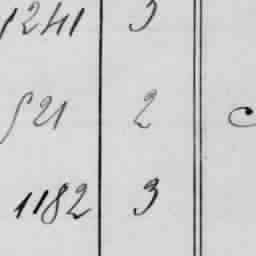 1241 3
521 2
1182 3